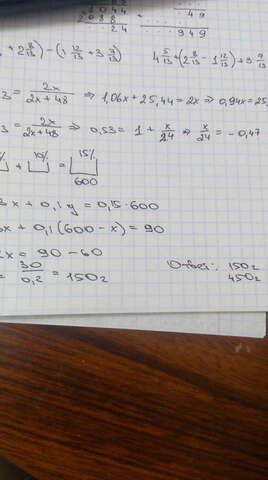 2044
2088
24
49
949
+ 2 8/13) - (1 12/13 + 3 7/13)
4 5/13 + (2 8/13 - 1 12/13) + 3 7/13
3 = 2x/(2x+48) ⇒ 1,06x + 25,44 = 2x ⇒ 0,94x = 25,
3 = 2x/(2x+48) ⇒ 0,53 = 1 + x/24 ⇒ x/24 = -0,47
% + 10% = 15%
600
3x + 0,1y = 0,15·600
x + 0,1(600-x) = 90
x = 90 - 60
= 30/0,2 = 150г
Ответ: 150г
450г